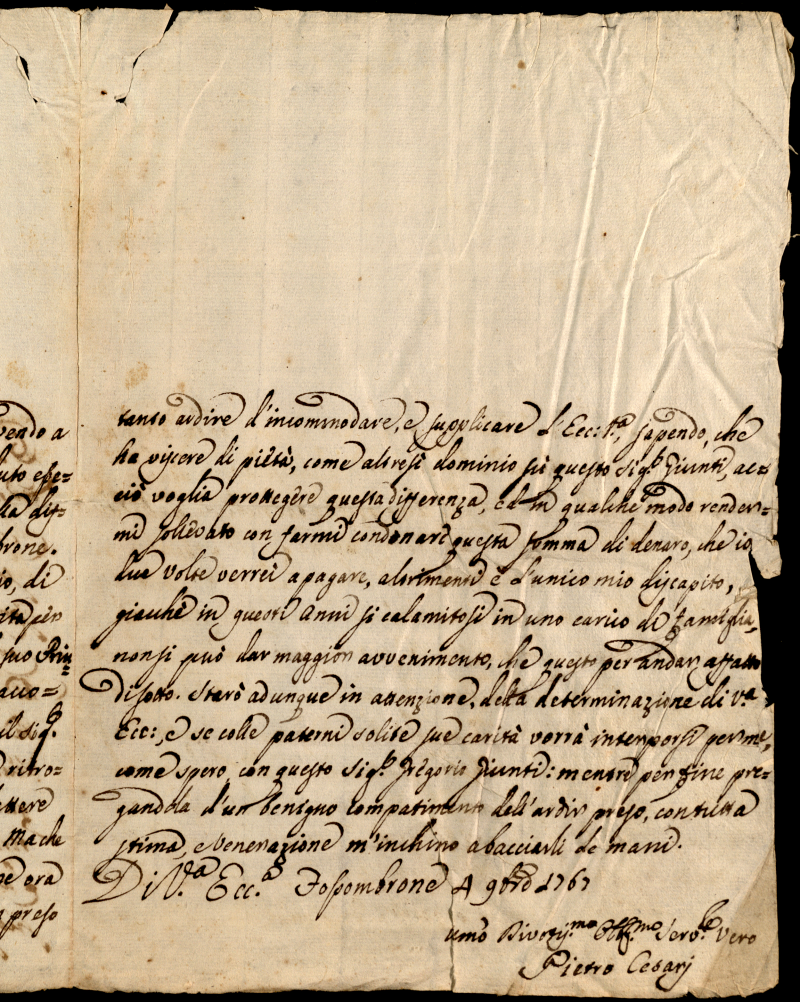 vendo a
uto effe=
la dif=
brone.
io, di
ità per
suo Prin=
acco=
il Sig.r
ritro=
ettere
Ma che
he ora
preso
tanto ardire d'incommodare, e supplicare l'Ecc: V.a, sapendo, che
ha viscere di pietà, come altresi dominio sù questo Sig.r Giunti, ac=
ciò voglia proteggere questa differenza, ed in qualche modo render=
mi sollevato con farmi condonare questa somma di denaro, che io
due volte verrei a pagare, altrimenti è l'unico mio discapito,
giacchè in questi Anni si calamitosi in uno carico di famiglia,
non si può dar maggior avvenimento, che questo per andar affatto
di sotto. Starò adunque in attenzione della determinazione di V.a
Ecc:, e se colle paterni solite sue carità vorrà interporsi per me,
come spero, con questo Sig.r Gregorio Giunti: mentre per fine pre=
gandola d'un benigno compatimento dell'ardir preso, con tutta
stima, e Venerazione m'inchino a bacciarli le mani.
Di V.a Ecc.a Fossombrone 4 9bre 1767
Umo Divotis.mo Obb.mo Serv.e Vero
Pietro Cesarj